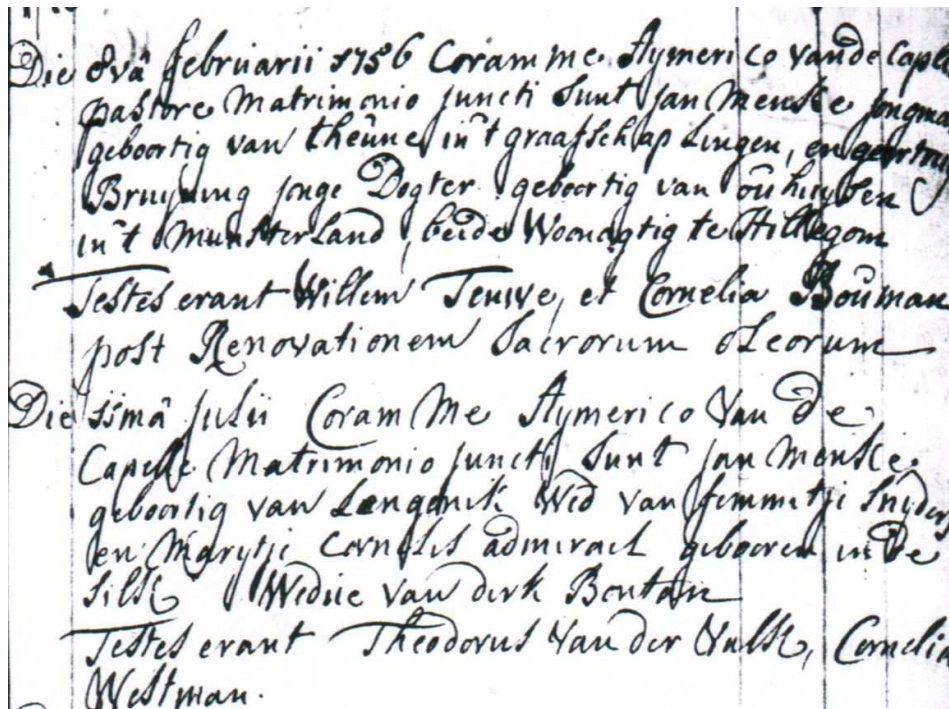 Die 8vâ februarii 1756 Coram me Aymerico vande Capel
pastore Matrimonio juncti Sunt jan Menste jongma
geboortig van theüne in't graafschap Lingen, en geertru
Bruijning jonge Dogter geboortig van oûhuysen
in't Munsterland, beide Woonagtig te Hillegom
Testes erant Willem Teuwe, et Cornelia Boüman
post Renovationem Sacrorum oleorum
Die 11mâ julii Coram Me Aymerico Van de
Capelle Matrimonio juncti Sunt jan Menste
geboortig van Lengerik Wed van femmetje Snyders
en Marytje Cornelis admirael geboren in de
Silk Wedüe van dirk Bontan
Testes erant Theodorus Van der Vulst, Cornelia
Westman.